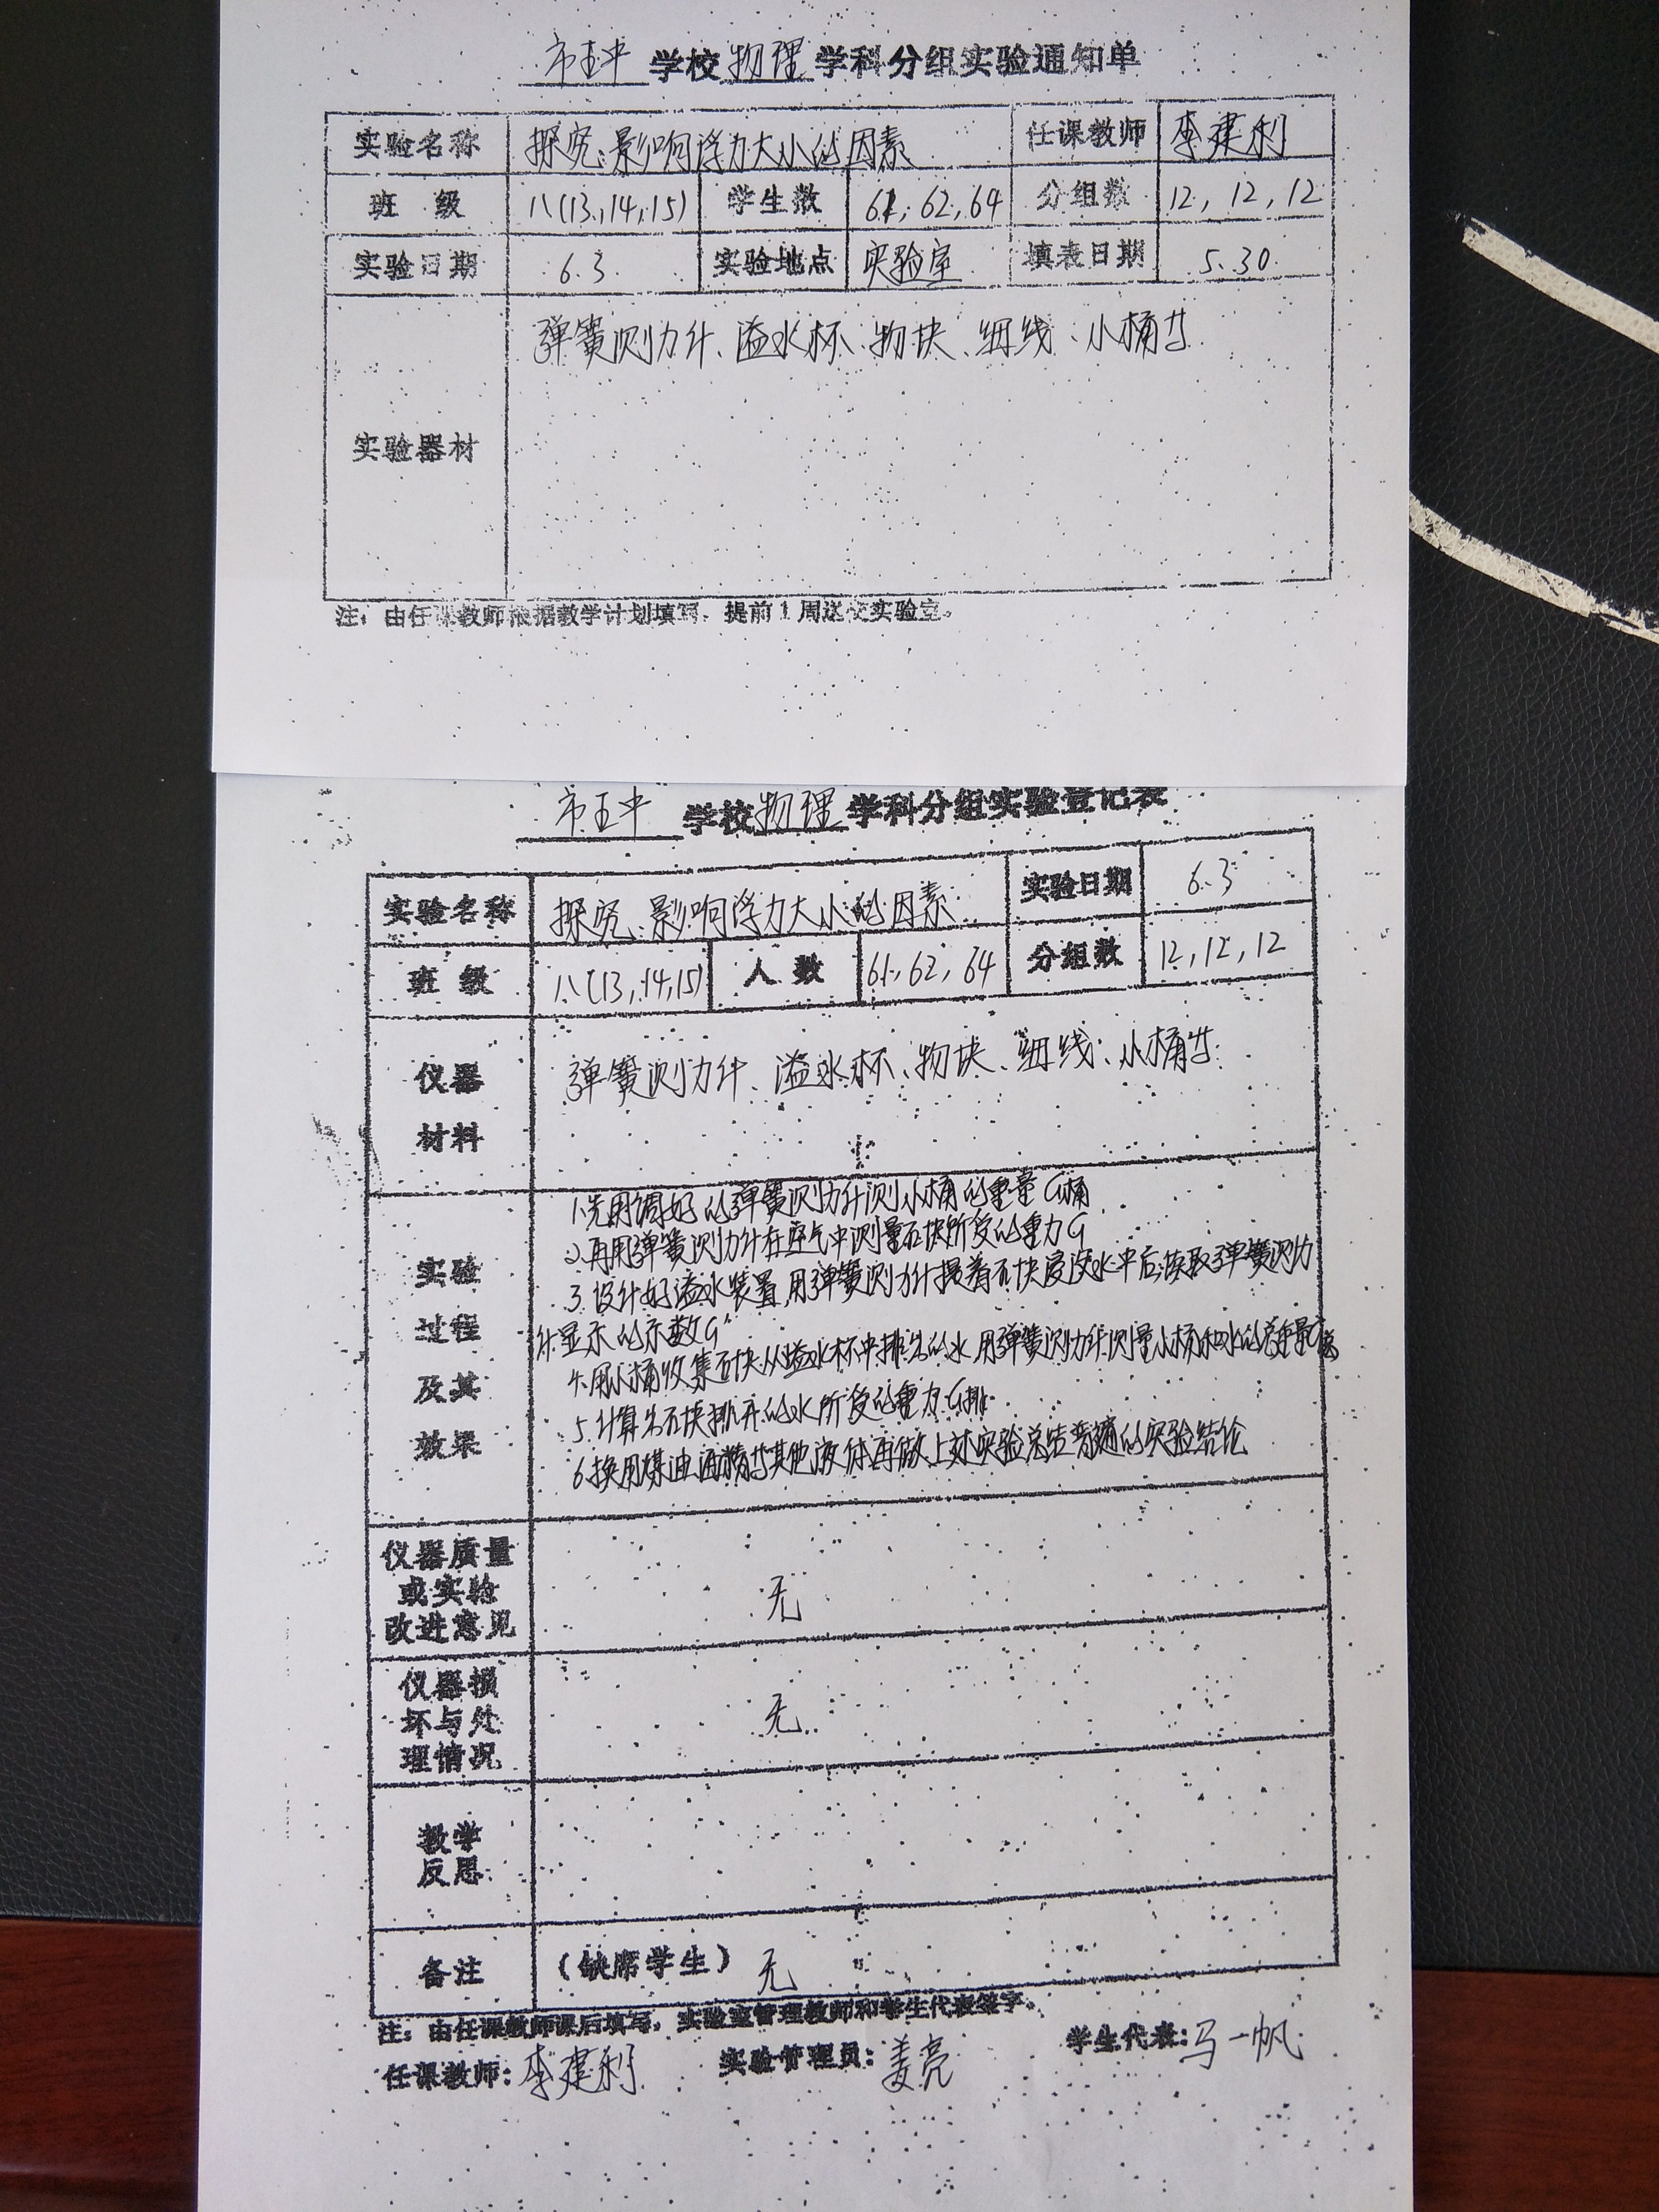 市五中学校物理学科分组实验通知单
实验名称 探究:影响浮力大小的因素 任课教师 李建利
班 级 八(13,14,15) 学生数 61,62,64 分组数 12,12,12
实验日期 6.3 实验地点 实验室 填表日期 5.30
实验器材 弹簧测力计、溢水杯、物块、细线、小桶等
注:由任课教师根据教学计划填写,提前1周送交实验室。
市五中学校物理学科分组实验登记表
实验名称 探究、影响浮力大小的因素 实验日期 6.3
班 级 八(13,14,15) 人 数 61,62,64 分组数 12,12,12
仪器材料 弹簧测力计、溢水杯、物块、细线、小桶等
实验过程及其效果
1.先用调好的弹簧测力计测小桶的重量G桶
2.再用弹簧测力计在空气中测量石块所受的重力G
3.设计好溢水装置,用弹簧测力计提着石块浸没水中后,读取弹簧测力
计显示的示数G'
4.用小桶收集石块从溢水杯中排出的水,用弹簧测力计测量小桶和水的总重量G总
5.计算出石块排开的水所受的重力G排
6.换用煤油、酒精等其他液体再做上述实验总结普遍的实验结论
仪器质量或实验改进意见 无
仪器损坏与处理情况 无
教学反思
备注 (缺席学生) 无
注:由任课教师课后填写,实验室管理教师和学生代表签字。
任课教师:李建利 实验管理员:姜亮 学生代表:马一帆